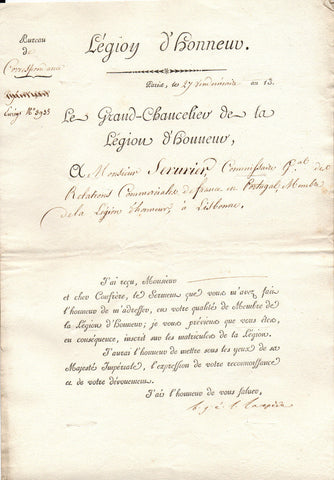 Bureau
de
Correspondance
Légion d'Honneur.
Paris, le 27 Vendémiaire an 13.
Le Grand-Chancelier de la
Légion d'Honneur,
A Monsieur Serurier Commissaire Gal. des
Relations Commerciales de france en Portugal, Membre
de la Légion d'honneur, à Lisbonne.
J'ai reçu, Monsieur
et cher Confrère, le Serment que vous m'avez fait
l'honneur de m'adresser, en votre qualité de Membre de
la Légion d'Honneur; je vous préviens que vous êtes,
en conséquence, inscrit sur les matricules de la Légion.
J'aurai l'honneur de mettre sous les yeux de sa
Majesté Impériale, l'expression de votre reconnaissance
et de votre dévouement.
J'ai l'honneur de vous saluer,